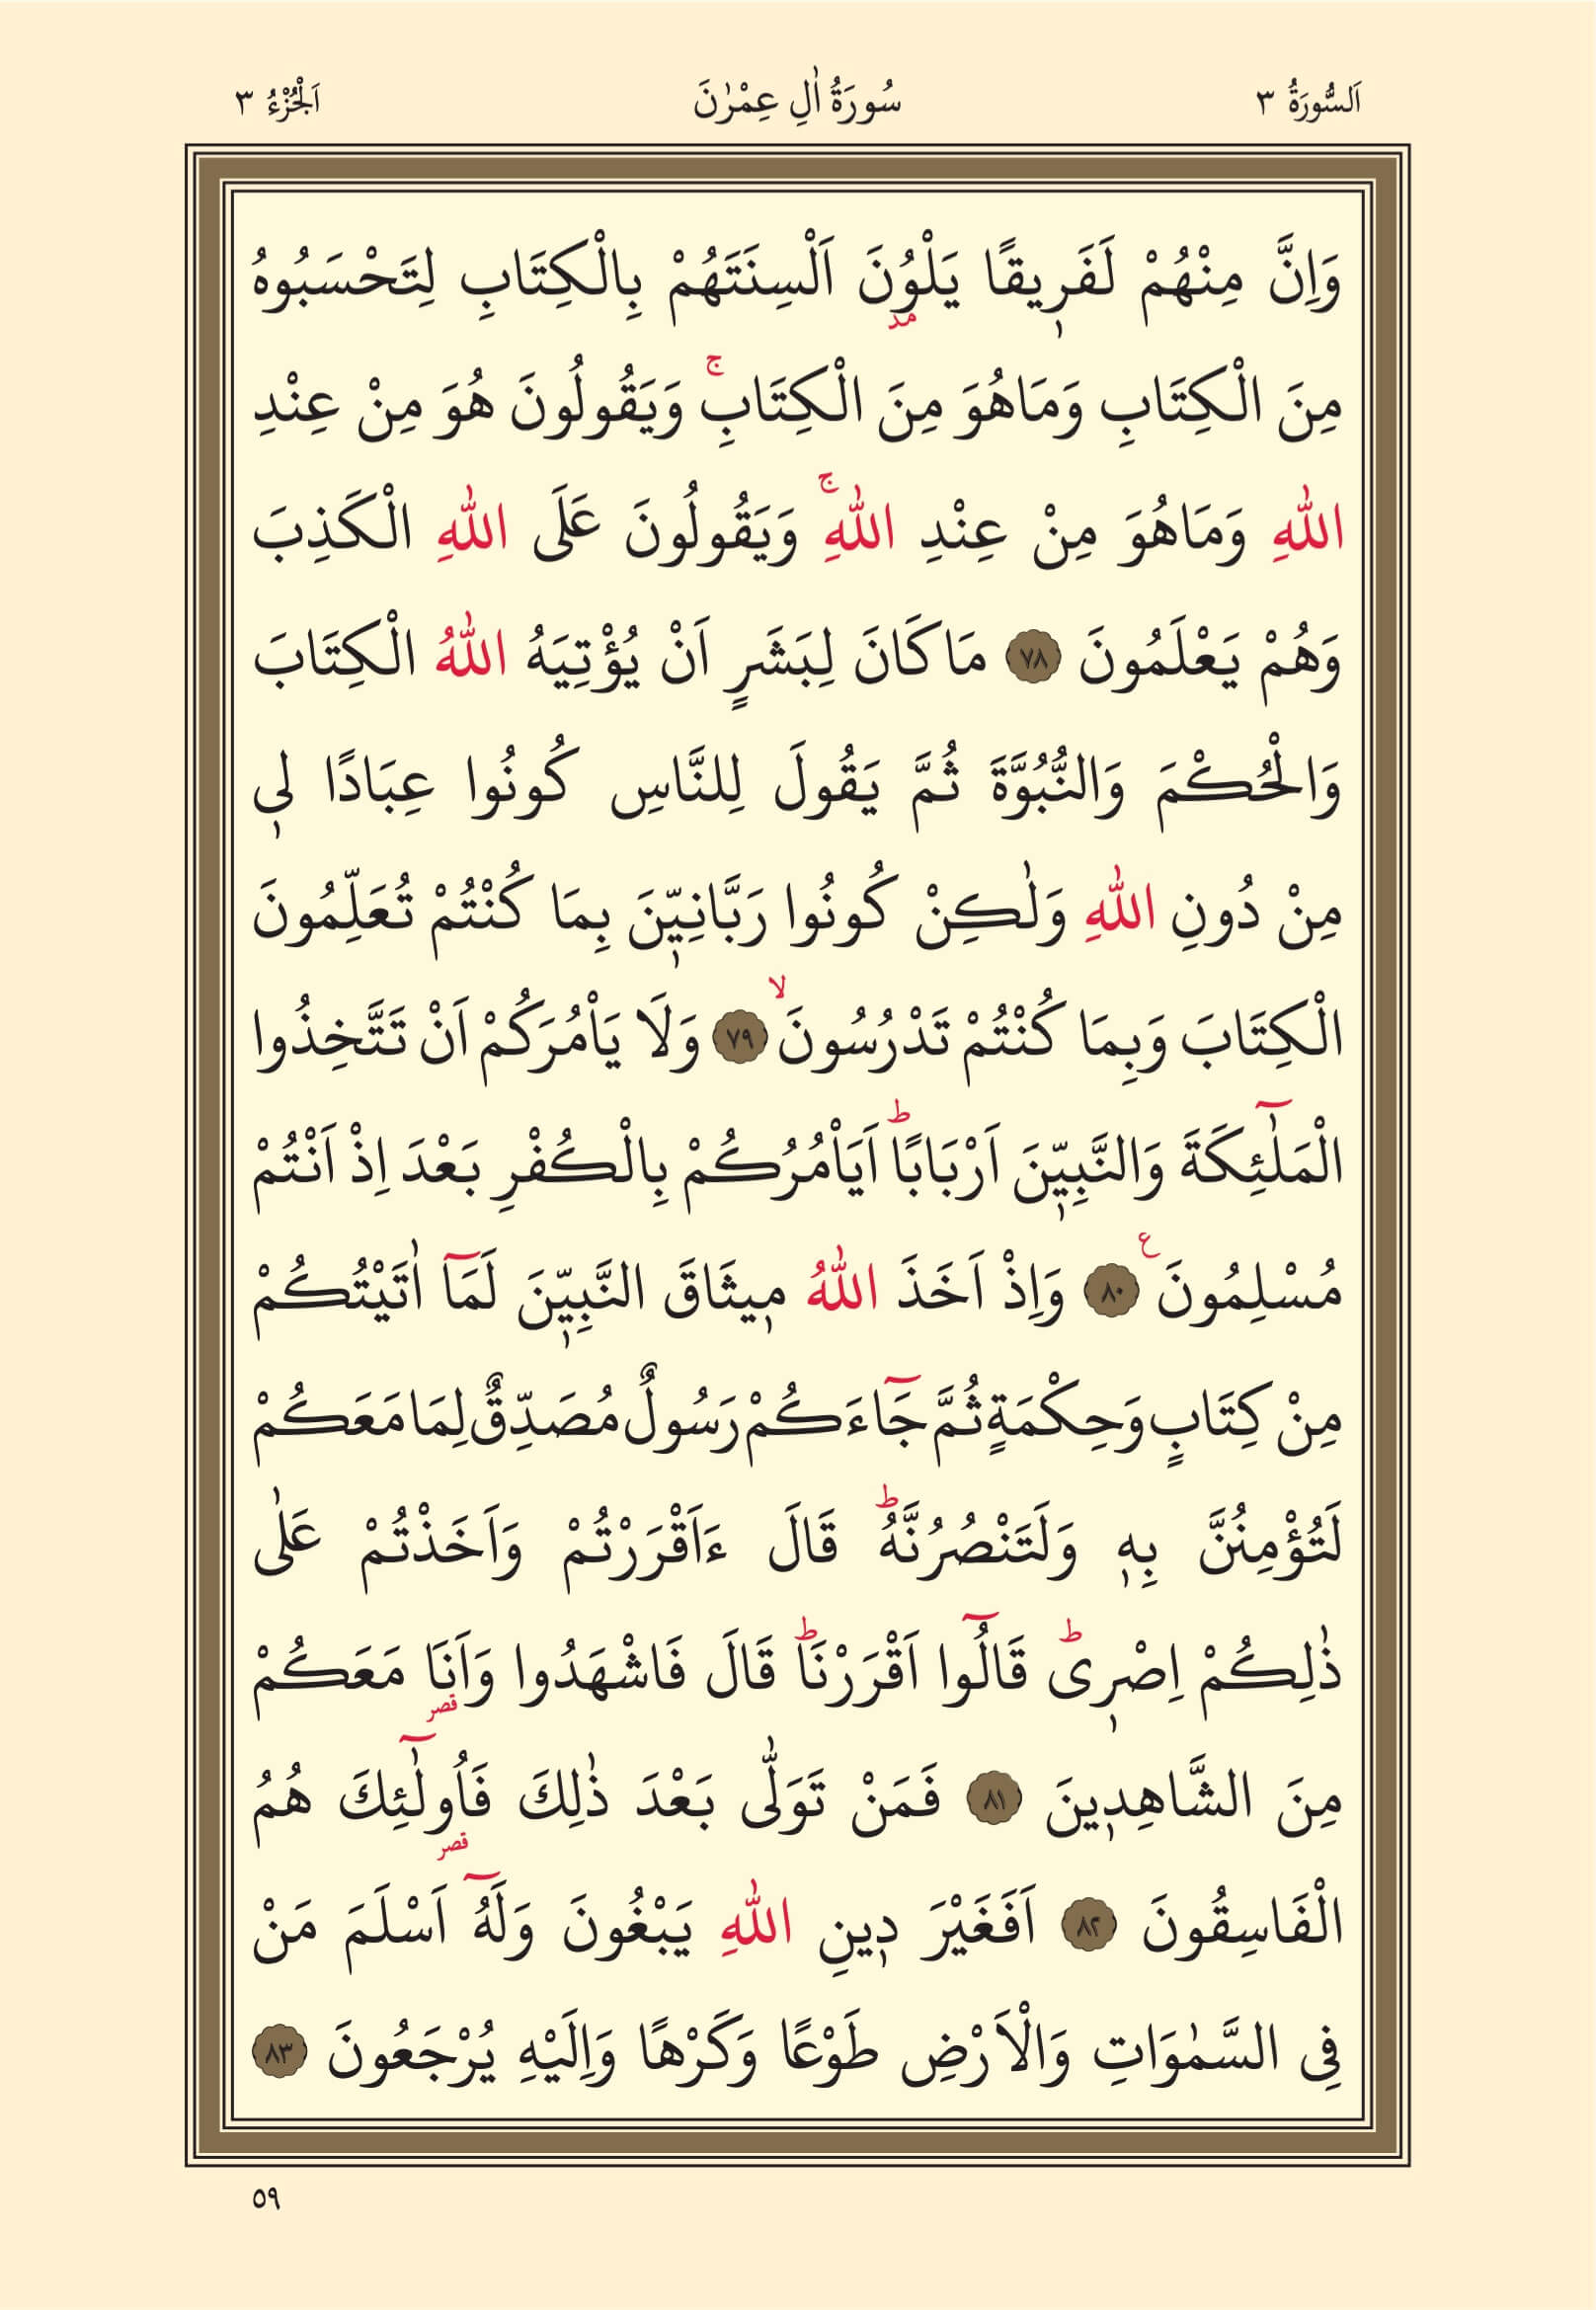 اَلسُّورَةُ ٣ سُورَةُ اٰلِ عِمْرٰنَ اَلْجُزْءُ ٣
وَاِنَّ مِنْهُمْ لَفَرٖيقًا يَلْوُ۫نَ اَلْسِنَتَهُمْ بِالْكِتَابِ لِتَحْسَبُوهُ
مد
مِنَ الْكِتَابِ وَمَاهُوَ مِنَ الْكِتَابِۚ وَيَقُولُونَ هُوَ مِنْ عِنْدِ
اللّٰهِ وَمَاهُوَ مِنْ عِنْدِ اللّٰهِۚ وَيَقُولُونَ عَلَى اللّٰهِ الْكَذِبَ
وَهُمْ يَعْلَمُونَ ﴿٧٨﴾ مَاكَانَ لِبَشَرٍ اَنْ يُؤْتِيَهُ اللّٰهُ الْكِتَابَ
وَالْحُكْمَ وَالنُّبُوَّةَ ثُمَّ يَقُولَ لِلنَّاسِ كُونُوا عِبَادًا لٖى
مِنْ دُونِ اللّٰهِ وَلٰكِنْ كُونُوا رَبَّانِيّٖنَ بِمَا كُنْتُمْ تُعَلِّمُونَ
الْكِتَابَ وَبِمَا كُنْتُمْ تَدْرُسُونَۙ ﴿٧٩﴾ وَلَا يَاْمُرَكُمْ اَنْ تَتَّخِذُوا
الْمَلٰٓئِكَةَ وَالنَّبِيّٖنَ اَرْبَابًاؕ اَيَاْمُرُكُمْ بِالْكُفْرِ بَعْدَ اِذْ اَنْتُمْ
مُسْلِمُونَ ع ﴿٨٠﴾ وَاِذْ اَخَذَ اللّٰهُ مٖيثَاقَ النَّبِيّٖنَ لَمَٓا اٰتَيْتُكُمْ
مِنْ كِتَابٍ وَحِكْمَةٍ ثُمَّ جَٓاءَكُمْ رَسُولٌ مُصَدِّقٌ لِمَا مَعَكُمْ
لَتُؤْمِنُنَّ بِهٖ وَلَتَنْصُرُنَّهُؕ قَالَ ءَاَقْرَرْتُمْ وَاَخَذْتُمْ عَلٰى
ذٰلِكُمْ اِصْرٖىؕ قَالُٓوا اَقْرَرْنَاؕ قَالَ فَاشْهَدُوا وَاَنَا مَعَكُمْ
قصر
مِنَ الشَّاهِدٖينَ ﴿٨١﴾ فَمَنْ تَوَلّٰى بَعْدَ ذٰلِكَ فَاُولٰٓئِكَ هُمُ
قصر
الْفَاسِقُونَ ﴿٨٢﴾ اَفَغَيْرَ دٖينِ اللّٰهِ يَبْغُونَ وَلَهُٓ اَسْلَمَ مَنْ
فِى السَّمٰوَاتِ وَالْاَرْضِ طَوْعًا وَكَرْهًا وَاِلَيْهِ يُرْجَعُونَ ﴿٨٣﴾
٥٩